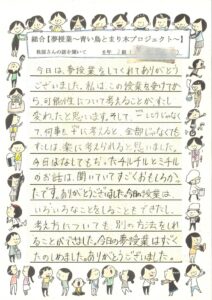 総合【夢授業～青い鳥とまり木プロジェクト～】
さんの話を聞いて 6年 組
今日は、夢授業をしてくれてありがとう
ございました。私は、この授業を受けてか
ら、可能性について考えることがすこし
変わったと思います。そして、
て、何事も に考えると、全部じゃなくても
すこしは、楽に考えられると思いました。
今日はなしてもらったチルチルとミチル
のお話は、聞いていてすごくおもしろかっ
たです。楽 ありがとうございました。今日の授業は
いろいろなことをしることもできたし、
考え方についても、別の方法をしれ
ることができました。今日の夢授業はすごく
たのしめました。ありがとうございました。